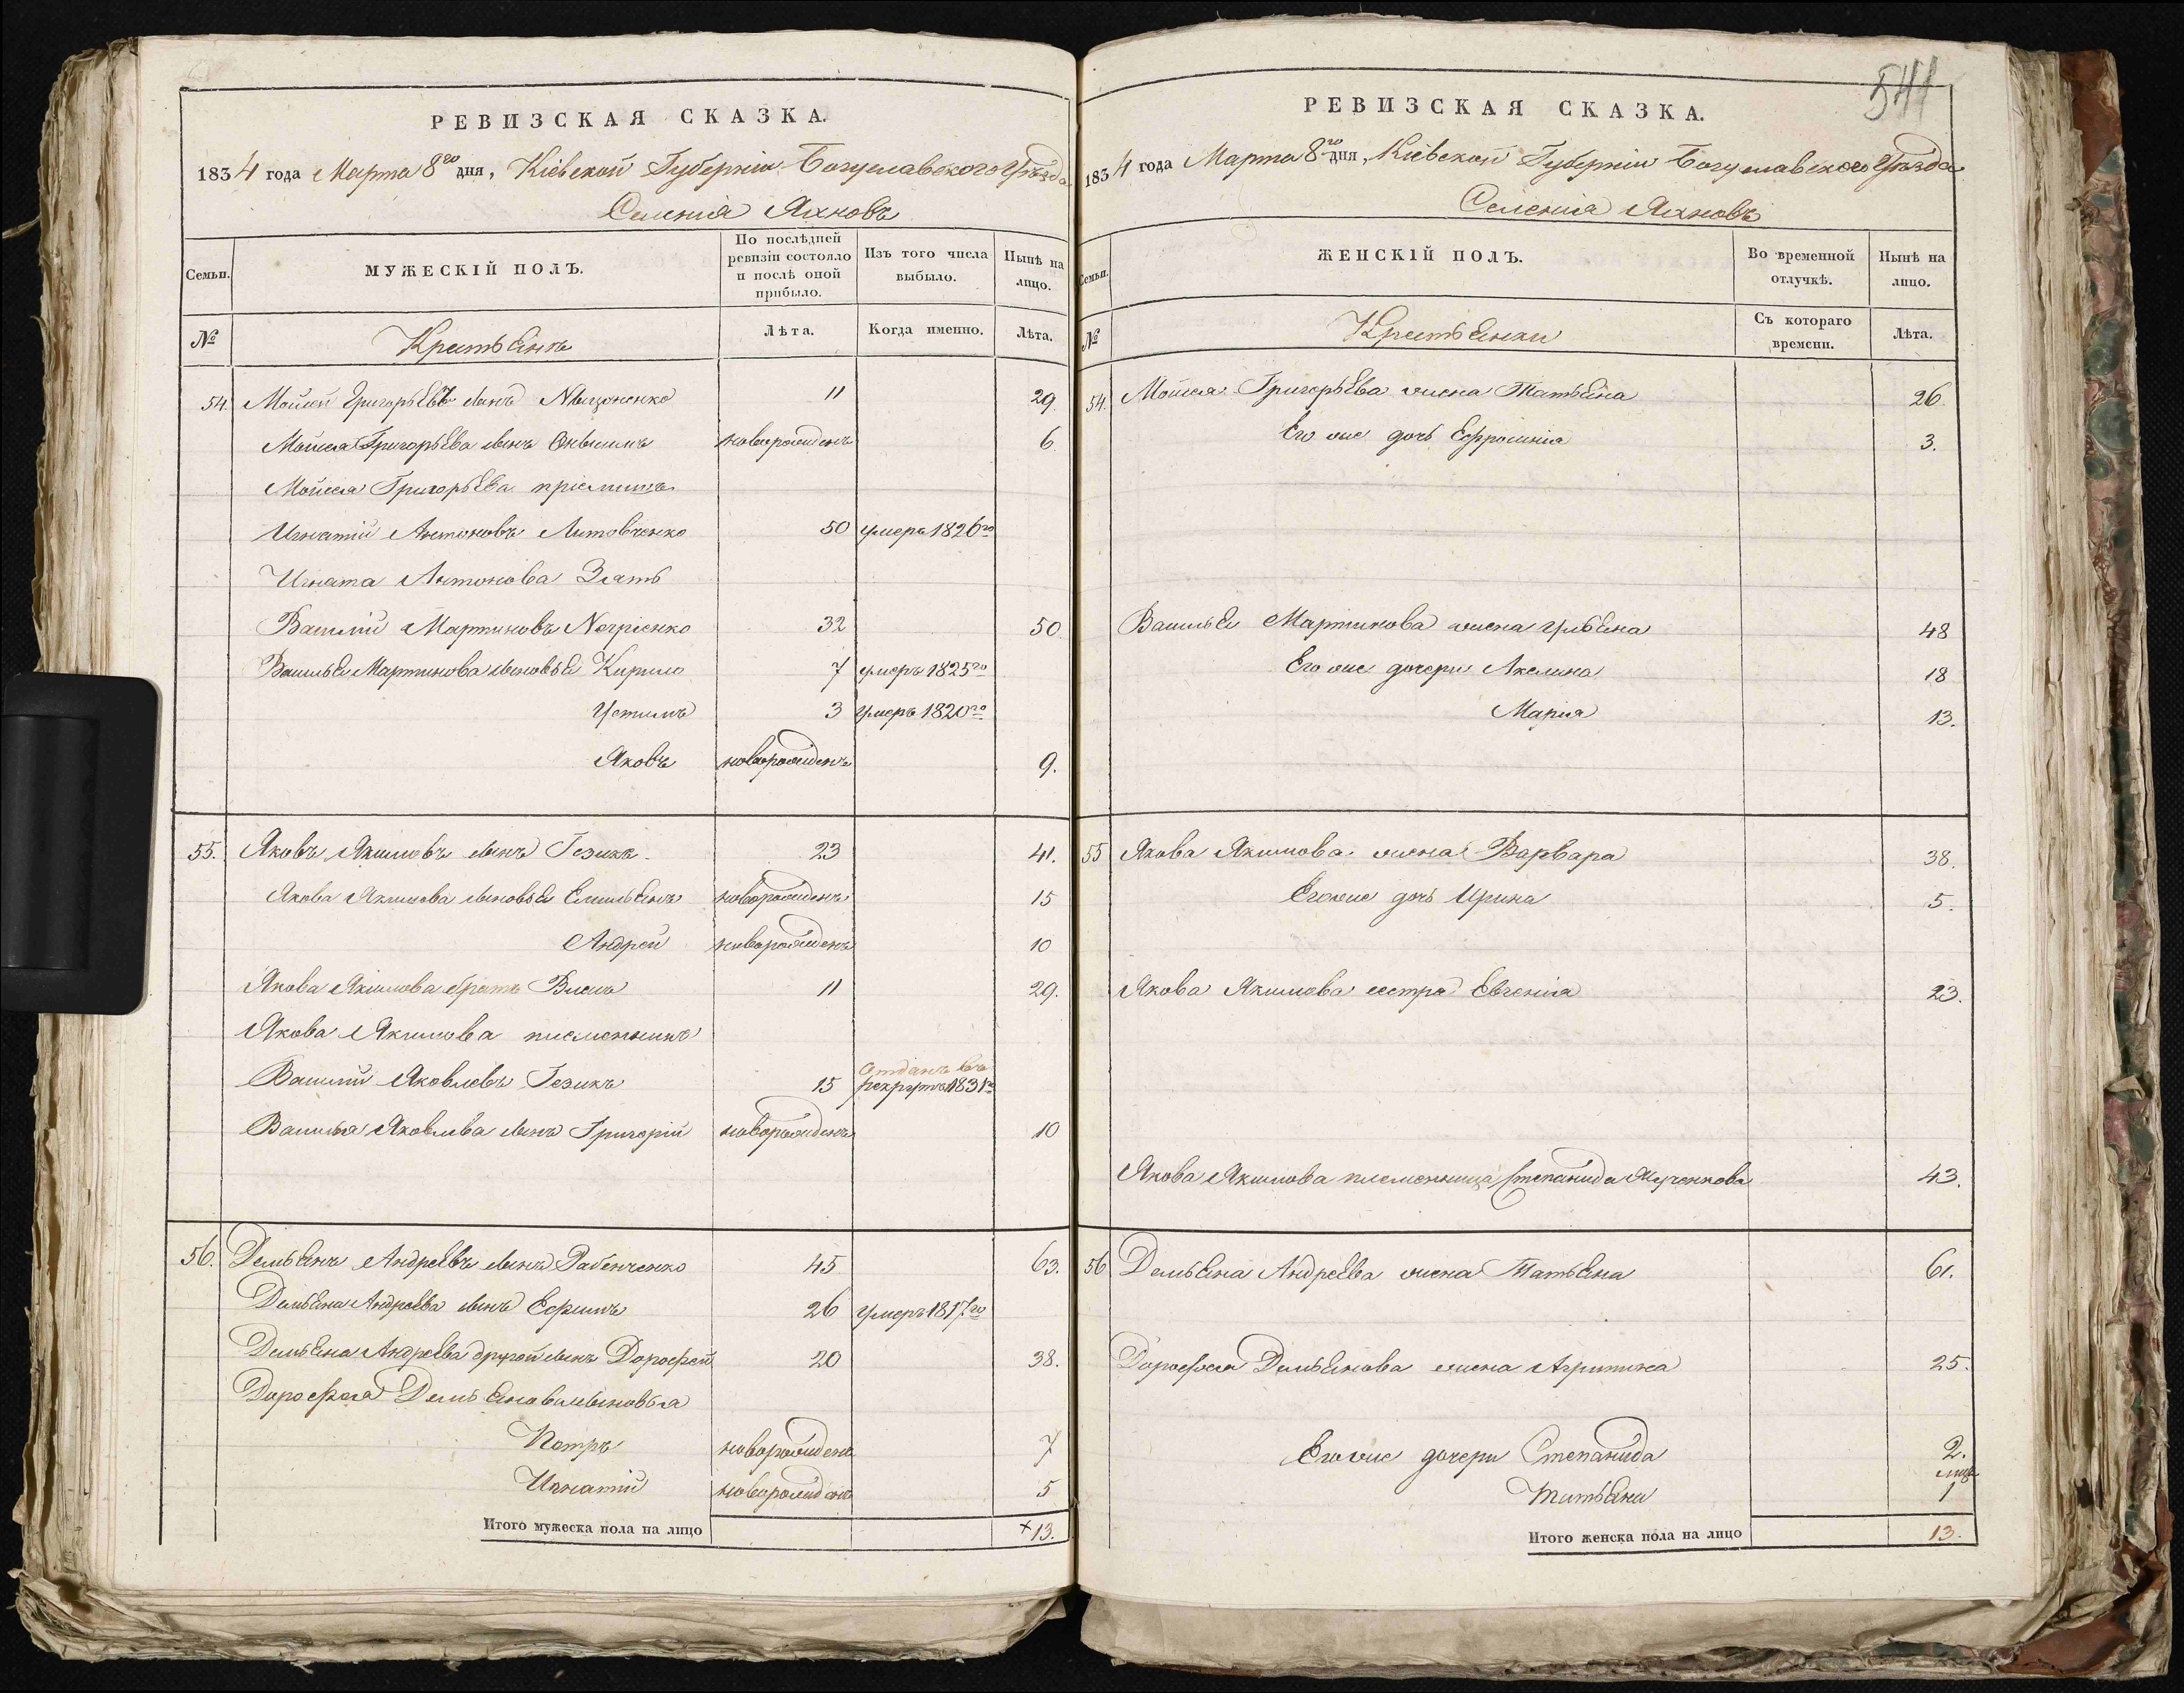 РЕВИЗСКАЯ СКАЗКА.
1834 года Марта 8го дня, Кіевской Губерніи Богуславского Уѣзда
Селенія Яхновъ
Семьи.
МУЖЕСКІЙ ПОЛЪ.
По послѣдней ревизіи состояло и послѣ оной прибыло.
Изъ того числа выбыло.
Нынѣ на лицо.
№
Крестьянъ
Лѣта.
Когда именно.
Лѣта.
54. Мойсей Григорьевъ сынъ 11 29.
Мойсея Григорьева сынъ новорожденъ 6.
Мойсея Григорьева пріемишъ
Игнатій Антоновъ Литовченко 50 умеръ 1826го
Игната Антонова Зять
Василій Мартиновъ Негріенко 32 50.
Василья Мартинова сыновья Кирило 7 умеръ 1825го
Устимъ 3 умеръ 1820го
Яковъ новорожденъ 9.
55. Яковъ Якимовъ сынъ Гезикъ 23 41.
Якова Якимова сыновья Емельянъ новорожденъ 15
Андрей новорожденъ 10
Якова Якимова братъ Власъ 11 29.
Якова Якимова племенникъ
Василій Яковлевъ Гезикъ 15 отданъ въ рекруты 1831го
Василья Яковлева сынъ Григорій новорожденъ 10
56. Демьянъ Андреевъ сынъ Рабенченко 45 63.
Демьяна Андреева сынъ Ефимъ 26 умеръ 1817го
Демьяна Андреева другой сынъ Дорофей 20 38.
Дорофея Демьянова сыновья
Петръ новорожденъ 7
Игнатій новорожденъ 5
Итого мужеска пола на лицо +13.
541
РЕВИЗСКАЯ СКАЗКА.
1834 года Марта 8го дня, Кіевской Губерніи Богуславского Уѣзда
Селенія Яхновъ
Семьи.
ЖЕНСКІЙ ПОЛЪ.
Во временной отлучкѣ.
Нынѣ на лицо.
№
Крестьянки
Съ котораго времени.
Лѣта.
54. Мойсея Григорьева жена Татьяна 26.
Его же дочь Ефросинія 3.
Василья Мартинова жена Ульяна 48
Его же дочери Акелина 18
Марія 13.
55 Якова Якимова жена Варвара 38.
Его же дочь Ирина 5.
Якова Якимова сестра Евгенія 23.
Якова Якимова племенница Степанида 43.
56 Демьяна Андреева жена Татьяна 61.
Дорофея Демьянова жена Агрипина 25.
Его же дочери Степанида 2.
Татьяна 1
Итого женска пола на лицо 13.